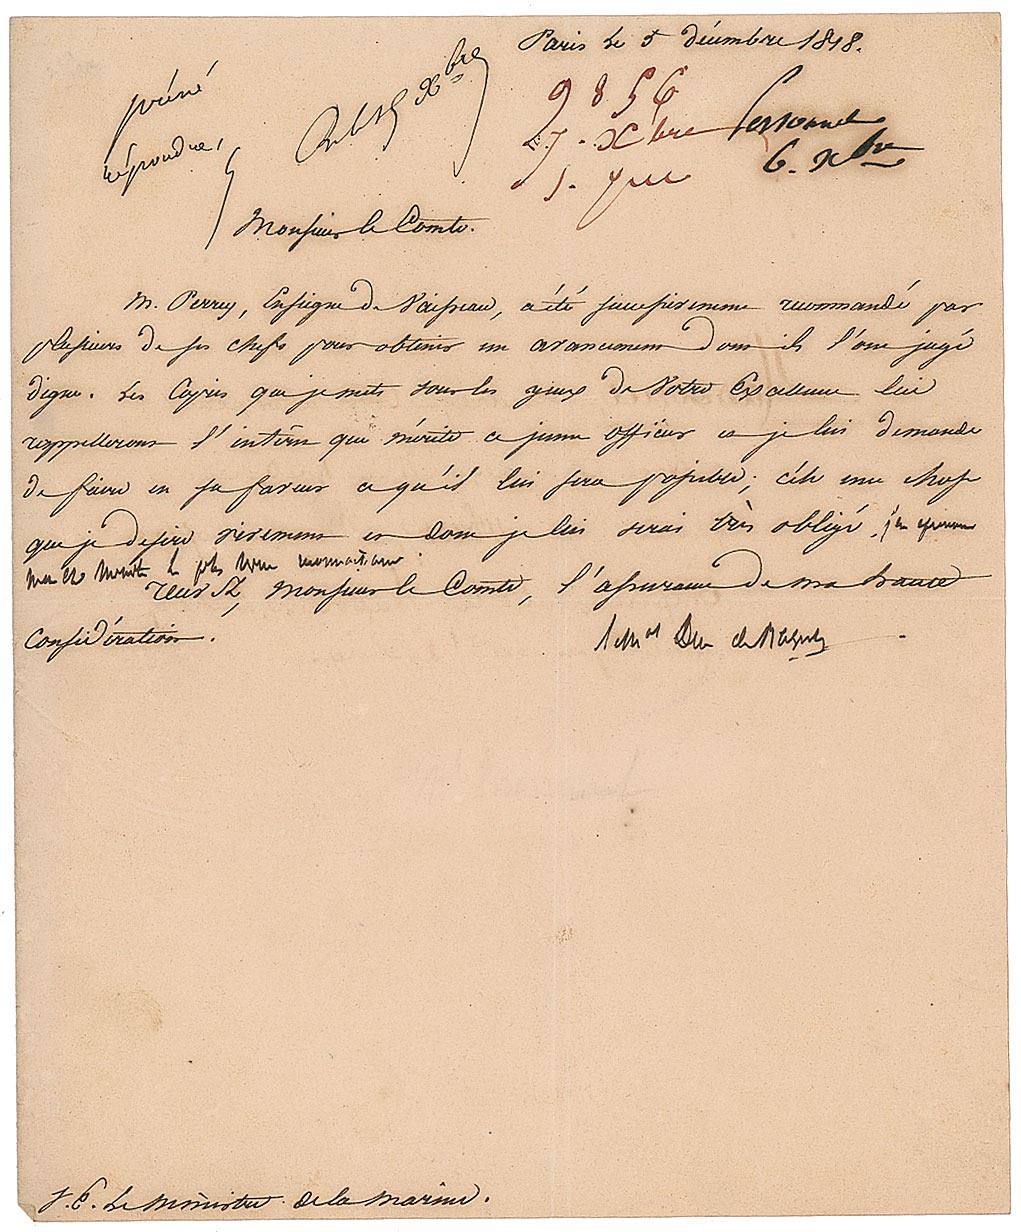 Paris le 5 décembre 1818.
prière
répondre,
Xbre
9856
7. Xbre
Personnel
6. Xbre
Monsieur le Comte.
M. Perrey, Enseigne de Vaisseau, a été successivement recommandé par
plusieurs de ses chefs pour obtenir un avancement dont ils l'ont jugé
digne. Les Copies que je mets sous les yeux de Votre Excellence lui
rappelleront l'intérêt que mérite ce jeune officier et je lui demande
de faire en sa faveur ce qu'il lui sera possible; c'est une chose
que je désire vivement et dont je lui serai très obligé. j'en
la plus vive
Recevez, Monsieur le Comte, l'assurance de ma haute
considération.
le Mal Duc de
S. E. Le Ministre de la Marine.